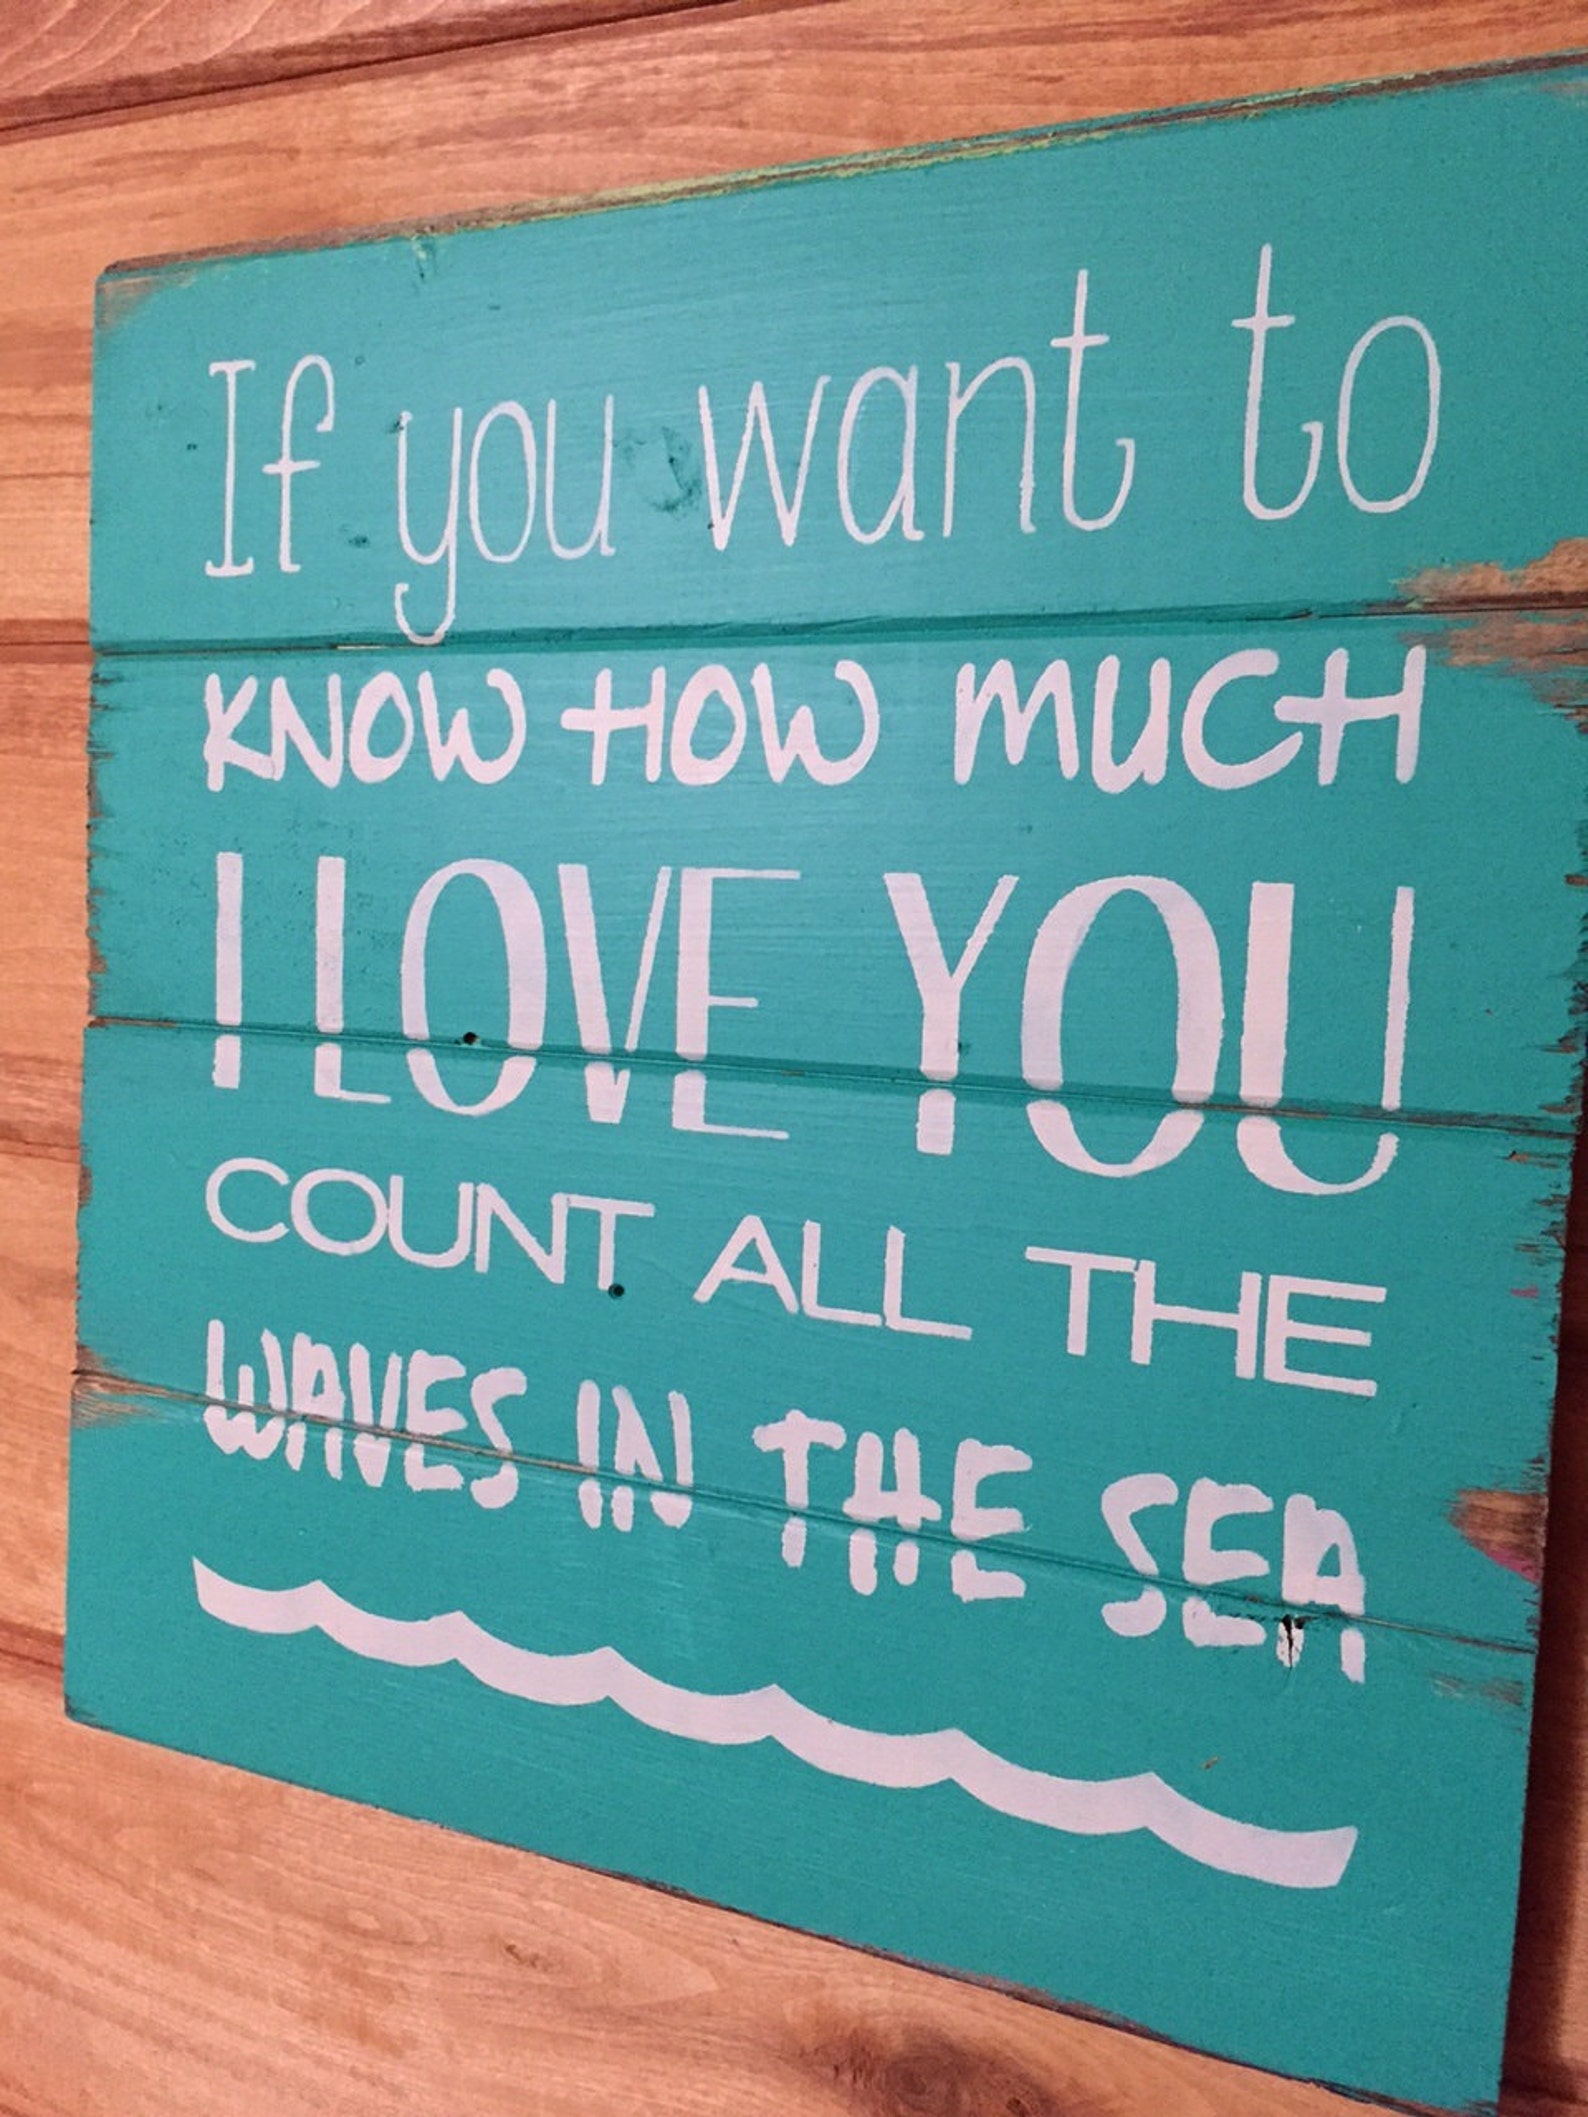 If you want to
KNOW HOW MUCH
I LOVE YOU
COUNT ALL THE
WAVES IN THE SEA